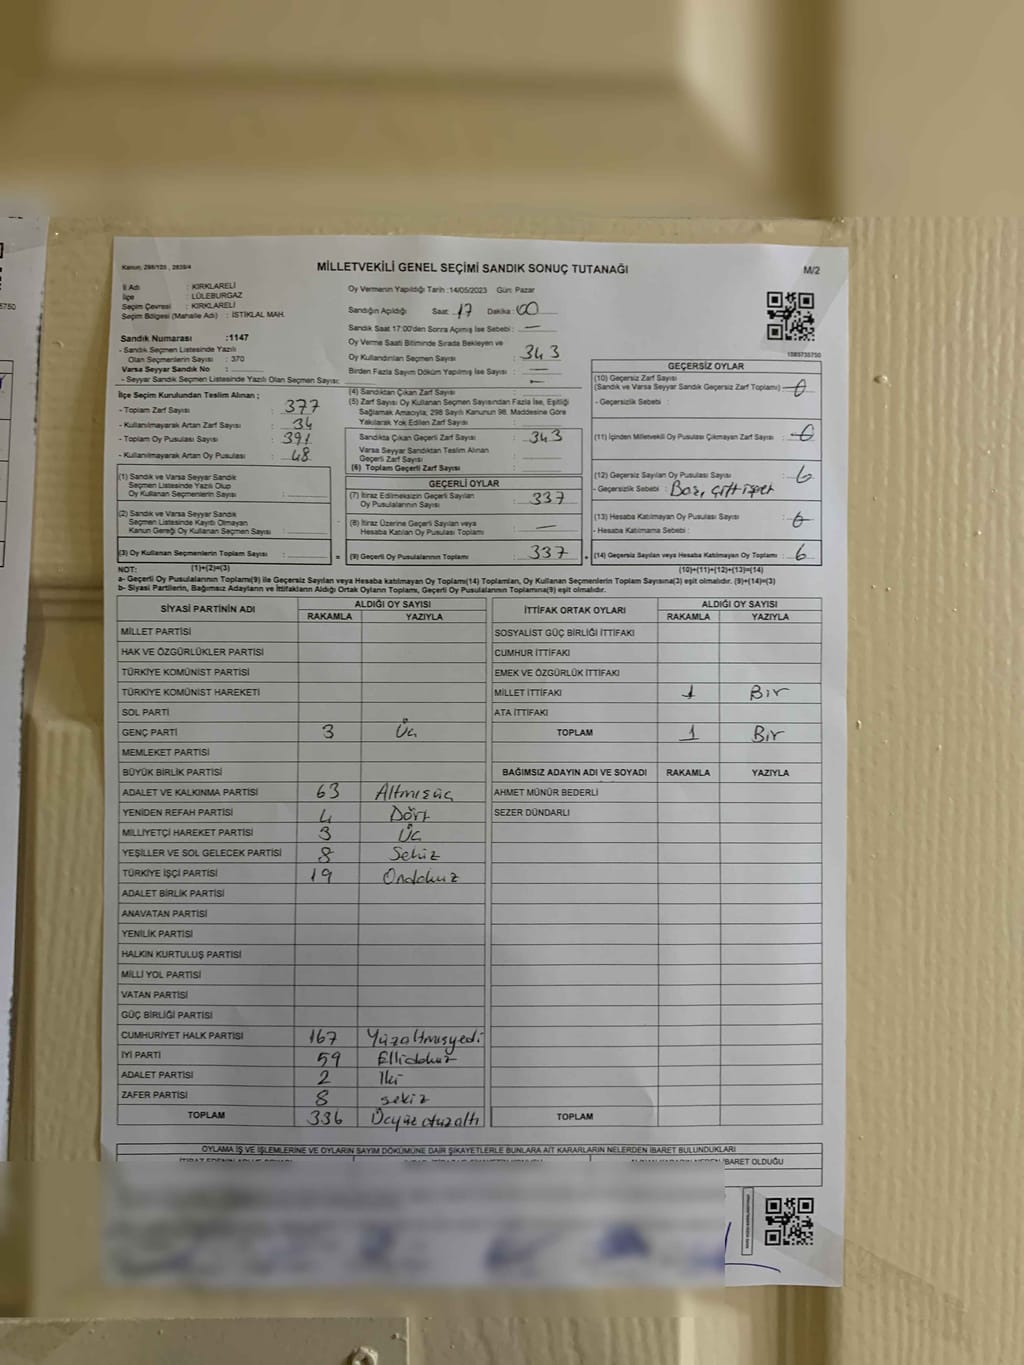 Kanun: 298/105 , 2839/4
MİLLETVEKİLİ GENEL SEÇİMİ SANDIK SONUÇ TUTANAĞI
M/2
İl Adı : KIRKLARELİ
İlçe : LÜLEBURGAZ
Seçim Çevresi : KIRKLARELİ
Seçim Bölgesi (Mahalle Adı) : İSTİKLAL MAH.
Sandık Numarası :1147
- Sandık Seçmen Listesinde Yazılı
Olan Seçmenlerin Sayısı : 370
Varsa Seyyar Sandık No :
- Seyyar Sandık Seçmen Listesinde Yazılı Olan Seçmen Sayısı:
İlçe Seçim Kurulundan Teslim Alınan ;
- Toplam Zarf Sayısı : 377
- Kullanılmayarak Artan Zarf Sayısı : 34
- Toplam Oy Pusulası Sayısı : 391
- Kullanılmayarak Artan Oy Pusulası : 48
(1) Sandık ve Varsa Seyyar Sandık
Seçmen Listesinde Yazılı Olup
Oy Kullanan Seçmenlerin Sayısı :
(2) Sandık ve Varsa Seyyar Sandık
Seçmen Listesinde Kayıtlı Olmayan
Kanun Gereği Oy Kullanan Seçmen Sayısı :
(3) Oy Kullanan Seçmenlerin Toplam Sayısı :
Oy Vermenin Yapıldığı Tarih :14/05/2023 Gün: Pazar
Sandığın Açıldığı Saat: 17 Dakika: 00
Sandık Saat 17:00'den Sonra Açılmış İse Sebebi : —
Oy Verme Saati Bitiminde Sırada Bekleyen ve
Oy Kullandırılan Seçmen Sayısı : 343
Birden Fazla Sayım Döküm Yapılmış İse Sayısı : —
(4) Sandıktan Çıkan Zarf Sayısı : —
(5) Zarf Sayısı Oy Kullanan Seçmen Sayısından Fazla İse, Eşitliği
Sağlamak Amacıyla; 298 Sayılı Kanunun 98. Maddesine Göre
Yakılarak Yok Edilen Zarf Sayısı :
Sandıkta Çıkan Geçerli Zarf Sayısı : 343
Varsa Seyyar Sandıktan Teslim Alınan
Geçerli Zarf Sayısı :
(6) Toplam Geçerli Zarf Sayısı :
GEÇERLİ OYLAR
(7) İtiraz Edilmeksizin Geçerli Sayılan
Oy Pusulalarının Sayısı : 337
(8) İtiraz Üzerine Geçerli Sayılan veya
Hesaba Katılan Oy Pusulası Toplamı : —
= (9) Geçerli Oy Pusulalarının Toplamı : 337 +
1585735750
GEÇERSİZ OYLAR
(10) Geçersiz Zarf Sayısı
(Sandık ve Varsa Seyyar Sandık Geçersiz Zarf Toplamı) : 0
- Geçersizlik Sebebi :
(11) İçinden Milletvekili Oy Pusulası Çıkmayan Zarf Sayısı : 0
(12) Geçersiz Sayılan Oy Pusulası Sayısı : 6
- Geçersizlik Sebebi : Boş, çift işret
(13) Hesaba Katılmayan Oy Pusulası Sayısı : 0
- Hesaba Katılmama Sebebi :
(14) Geçersiz Sayılan veya Hesaba Katılmayan Oy Toplamı : 6
NOT: (1)+(2)=(3) (10)+(11)+(12)+(13)=(14)
a- Geçerli Oy Pusulalarının Toplamı(9) ile Geçersiz Sayılan veya Hesaba katılmayan Oy Toplamı(14) Toplamları, Oy Kullanan Seçmenlerin Toplam Sayısına(3) eşit olmalıdır. (9)+(14)=(3)
b- Siyasi Partilerin, Bağımsız Adayların ve İttifakların Aldığı Ortak Oyların Toplamı, Geçerli Oy Pusulalarının Toplamına(9) eşit olmalıdır.
SİYASİ PARTİNİN ADI ALDIĞI OY SAYISI
RAKAMLA YAZIYLA
MİLLET PARTİSİ
HAK VE ÖZGÜRLÜKLER PARTİSİ
TÜRKİYE KOMÜNİST PARTİSİ
TÜRKİYE KOMÜNİST HAREKETİ
SOL PARTİ
GENÇ PARTİ 3 Üç
MEMLEKET PARTİSİ
BÜYÜK BİRLİK PARTİSİ
ADALET VE KALKINMA PARTİSİ 63 Altmışüç
YENİDEN REFAH PARTİSİ 4 Dört
MİLLİYETÇİ HAREKET PARTİSİ 3 Üç
YEŞİLLER VE SOL GELECEK PARTİSİ 8 Sekiz
TÜRKİYE İŞÇİ PARTİSİ 19 Ondokuz
ADALET BİRLİK PARTİSİ
ANAVATAN PARTİSİ
YENİLİK PARTİSİ
HALKIN KURTULUŞ PARTİSİ
MİLLİ YOL PARTİSİ
VATAN PARTİSİ
GÜÇ BİRLİĞİ PARTİSİ
CUMHURİYET HALK PARTİSİ 167 Yüzaltmışyedi
İYİ PARTİ 59 Ellidokuz
ADALET PARTİSİ 2 İki
ZAFER PARTİSİ 8 sekiz
TOPLAM 336 Üçyüz otuzaltı
İTTİFAK ORTAK OYLARI ALDIĞI OY SAYISI
RAKAMLA YAZIYLA
SOSYALİST GÜÇ BİRLİĞİ İTTİFAKI
CUMHUR İTTİFAKI
EMEK VE ÖZGÜRLÜK İTTİFAKI
MİLLET İTTİFAKI 1 Bir
ATA İTTİFAKI
TOPLAM 1 Bir
BAĞIMSIZ ADAYIN ADI VE SOYADI RAKAMLA YAZIYLA
AHMET MÜNÜR BEDERLİ
SEZER DÜNDARLI
TOPLAM
OYLAMA İŞ VE İŞLEMLERİNE VE OYLARIN SAYIM DÖKÜMÜNE DAİR ŞİKAYETLERLE BUNLARA AİT KARARLARIN NELERDEN İBARET BULUNDUKLARI
İBARET OLDUĞU
5750